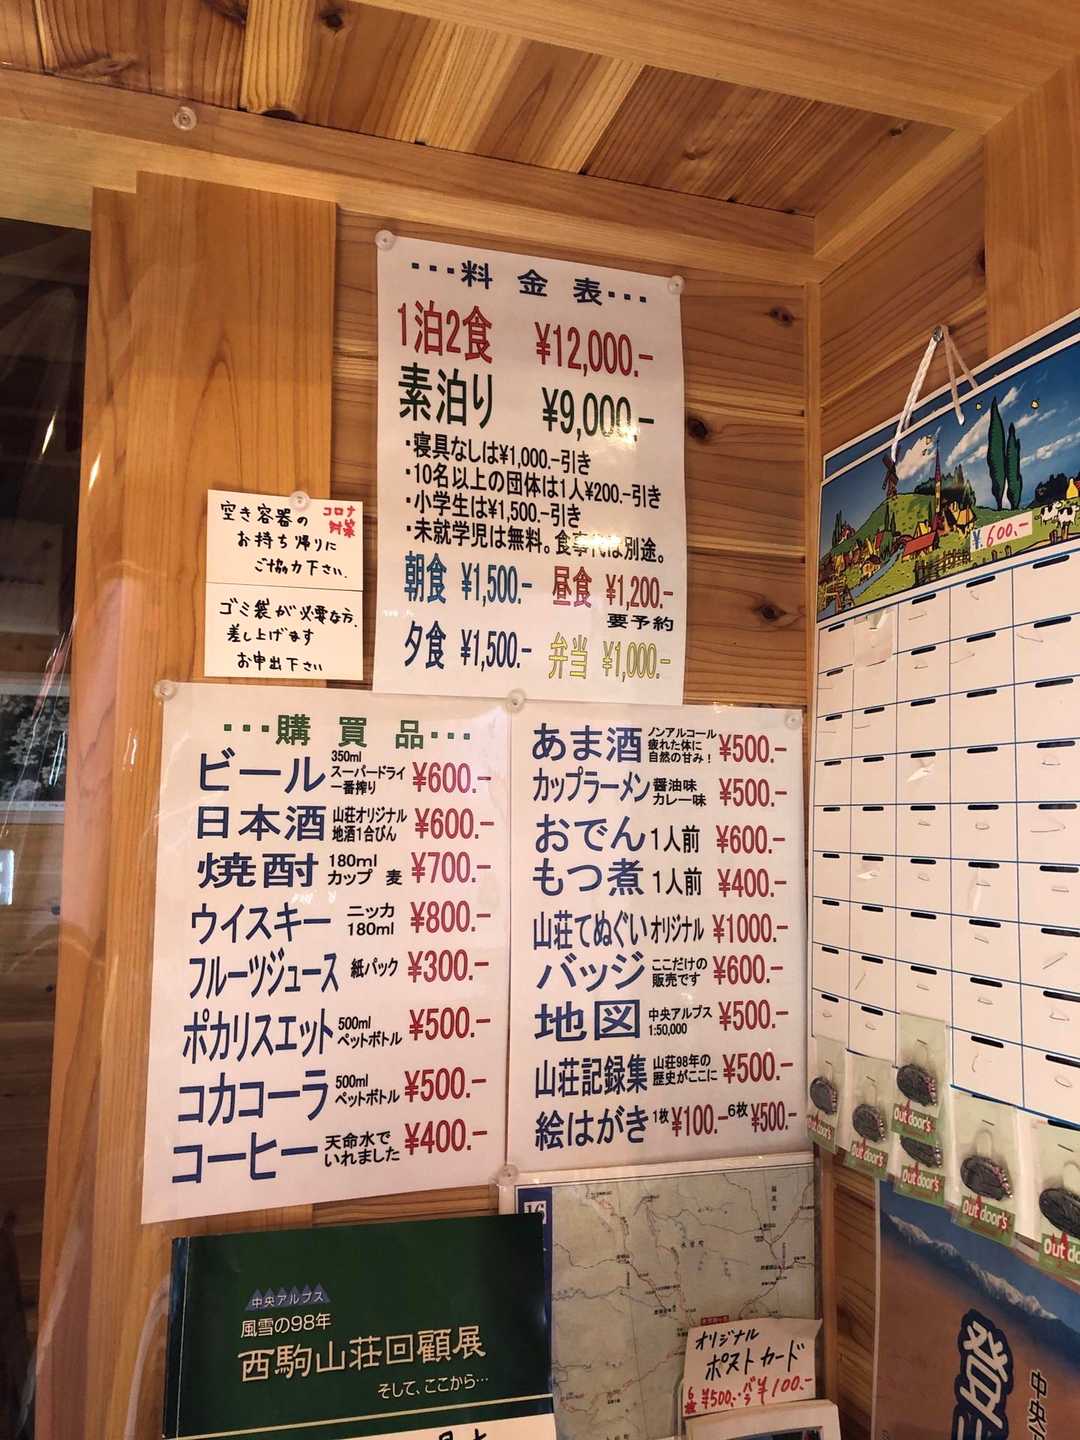 …料金表…
1泊2食 ¥12,000.-
素泊り ¥9,000.-
・寝具なしは¥1,000.-引き
・10名以上の団体は1人¥200.-引き
・小学生は¥1,500.-引き
・未就学児は無料。食事代は別途。
朝食 ¥1,500.- 昼食 ¥1,200.-
要予約
夕食 ¥1,500.- 弁当 ¥1,000.-
空き容器の コロナ対策
お持ち帰りに
ご協力下さい.
ゴミ袋が必要な方.
差し上げます
お申出下さい
…購買品…
ビール 350ml スーパードライ 一番搾り ¥600.-
日本酒 山荘オリジナル 地酒1合びん ¥600.-
焼酎 180ml カップ 麦 ¥700.-
ウイスキー ニッカ 180ml ¥800.-
フルーツジュース 紙パック ¥300.-
ポカリスエット 500ml ペットボトル ¥500.-
コカコーラ 500ml ペットボトル ¥500.-
コーヒー 天命水で いれました ¥400.-
あま酒 ノンアルコール 疲れた体に 自然の甘み！ ¥500.-
カップラーメン 醤油味 カレー味 ¥500.-
おでん 1人前 ¥600.-
もつ煮 1人前 ¥400.-
山荘てぬぐい オリジナル ¥1000.-
バッジ ここだけの 販売です ¥600.-
地図 中央アルプス 1:50,000 ¥500.-
山荘記録集 山荘98年の 歴史がここに ¥500.-
絵はがき 1枚 ¥100.- 6枚 ¥500.-
¥.600.-
Out door's
Out door's
Out door's
Out door's
Out door's
Out door's
中央アルプス
風雪の98年
西駒山荘回顧展
そして、ここから…
16
オリジナル
ポストカード
6枚 ¥500.- バラ ¥100.-